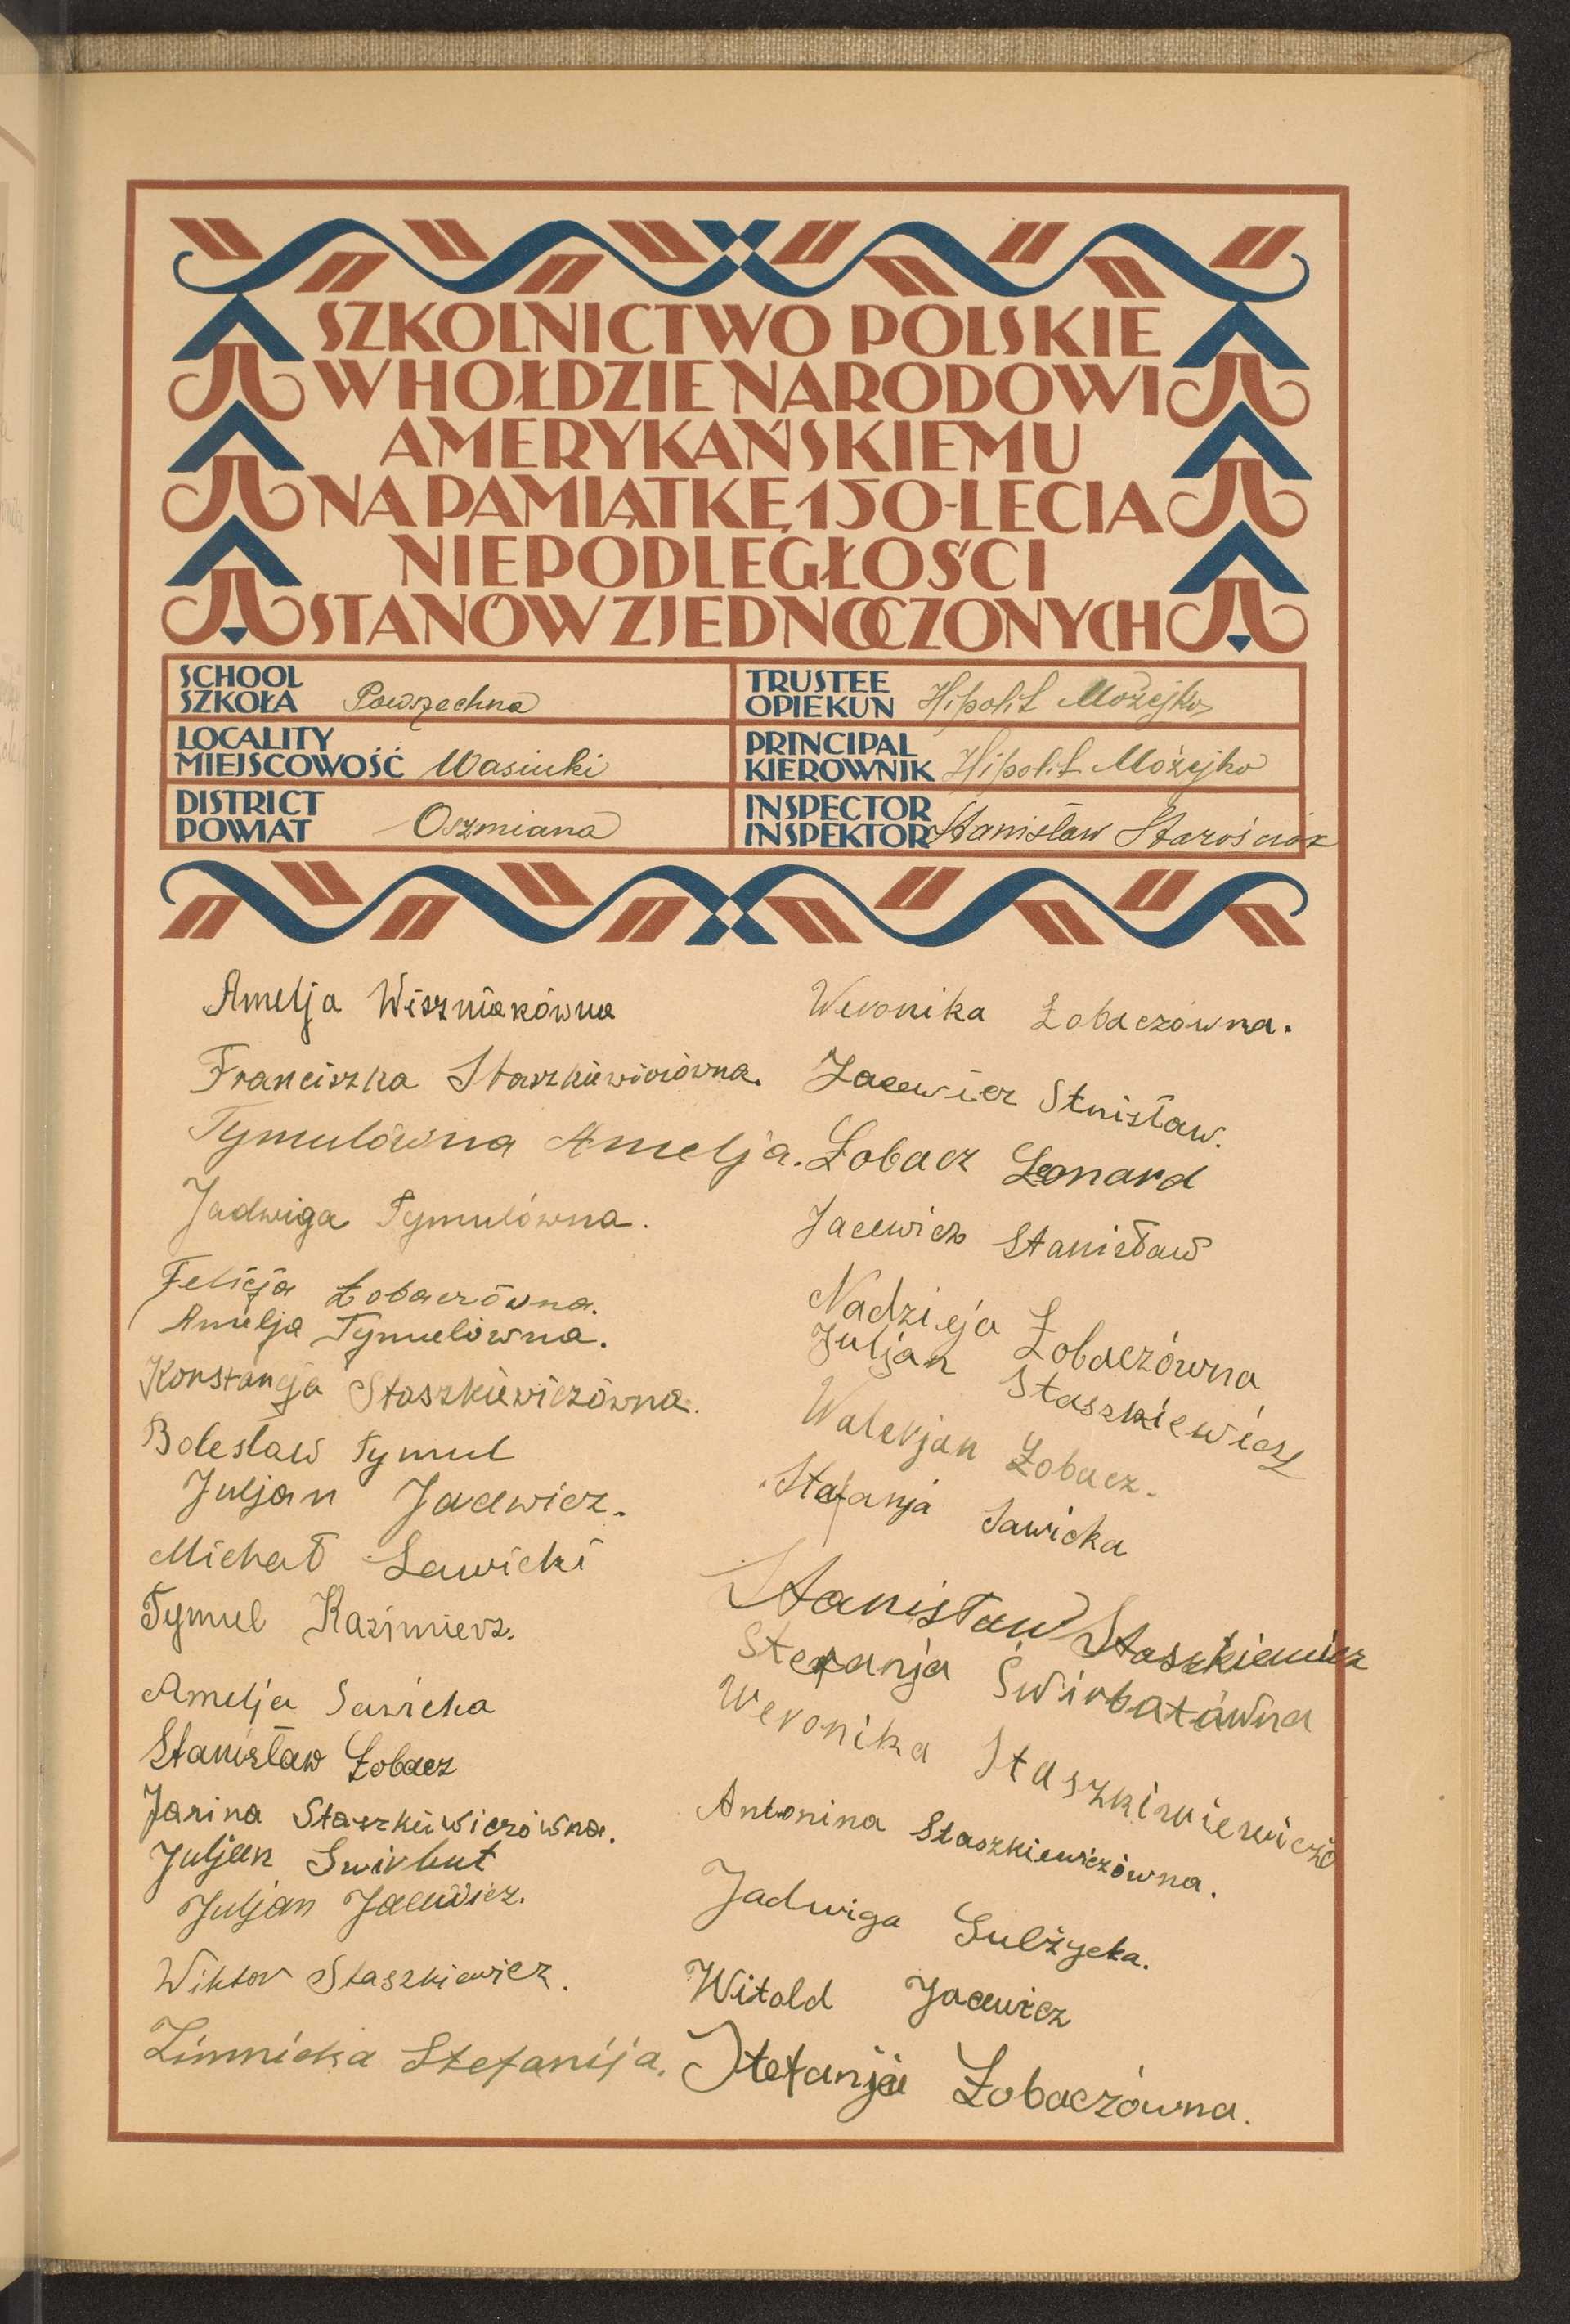 SZKOLNICTWO POLSKIE
W HOŁDZIE NARODOWI
AMERYKAŃSKIEMU
NA PAMIĄTKĘ 150-LECIA
NIEPODLEGŁOŚCI
STANÓW ZJEDNOCZONYCH
SCHOOL
SZKOŁA Powszechna
LOCALITY
MIEJSCOWOŚĆ Wasiuki
DISTRICT
POWIAT Oszmiana
TRUSTEE
OPIEKUN Hipolit Możejko
PRINCIPAL
KIEROWNIK Hipolit Możejko
INSPECTOR
INSPEKTOR Stanisław Starościak
Amelja Wiszniakówna
Franciszka Staszkiewiczówna.
Tymulówna Amelja.
Jadwiga Tymulówna.
Felicja Łobaczówna.
Amelja Tymulówna.
Konstancja Staszkiewiczówna.
Bolesław Tymul
Juljan Jacewicz.
Michał Sawicki
Tymul Kazimierz.
Amelja Sawicka
Stanisław Łobacz
Janina Staszkiewiczówna.
Juljan Swirbut
Juljan Jacewicz.
Wiktor Staszkiewicz.
Zimnicka Stefanija.
Weronika Łobaczówna.
Jacewicz Stnisław.
Łobacz Leonard
Jacewicz Stanisław
Nadzieja Łobaczówna
Juljan Staszkiewicz
Walerjan Łobacz.
Stefanja Sawicka
Stanisław Staszkiewicz
Stefanja Świrbutówna
Weronika
Antonina Staszkiewiczówna.
Jadwiga Sulżycka.
Witold Jacewicz
Stefanja Łobaczówna.